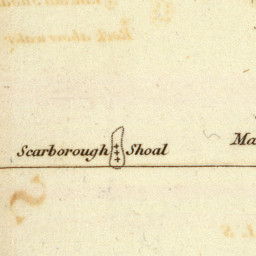 Scarborough Shoal
Ma